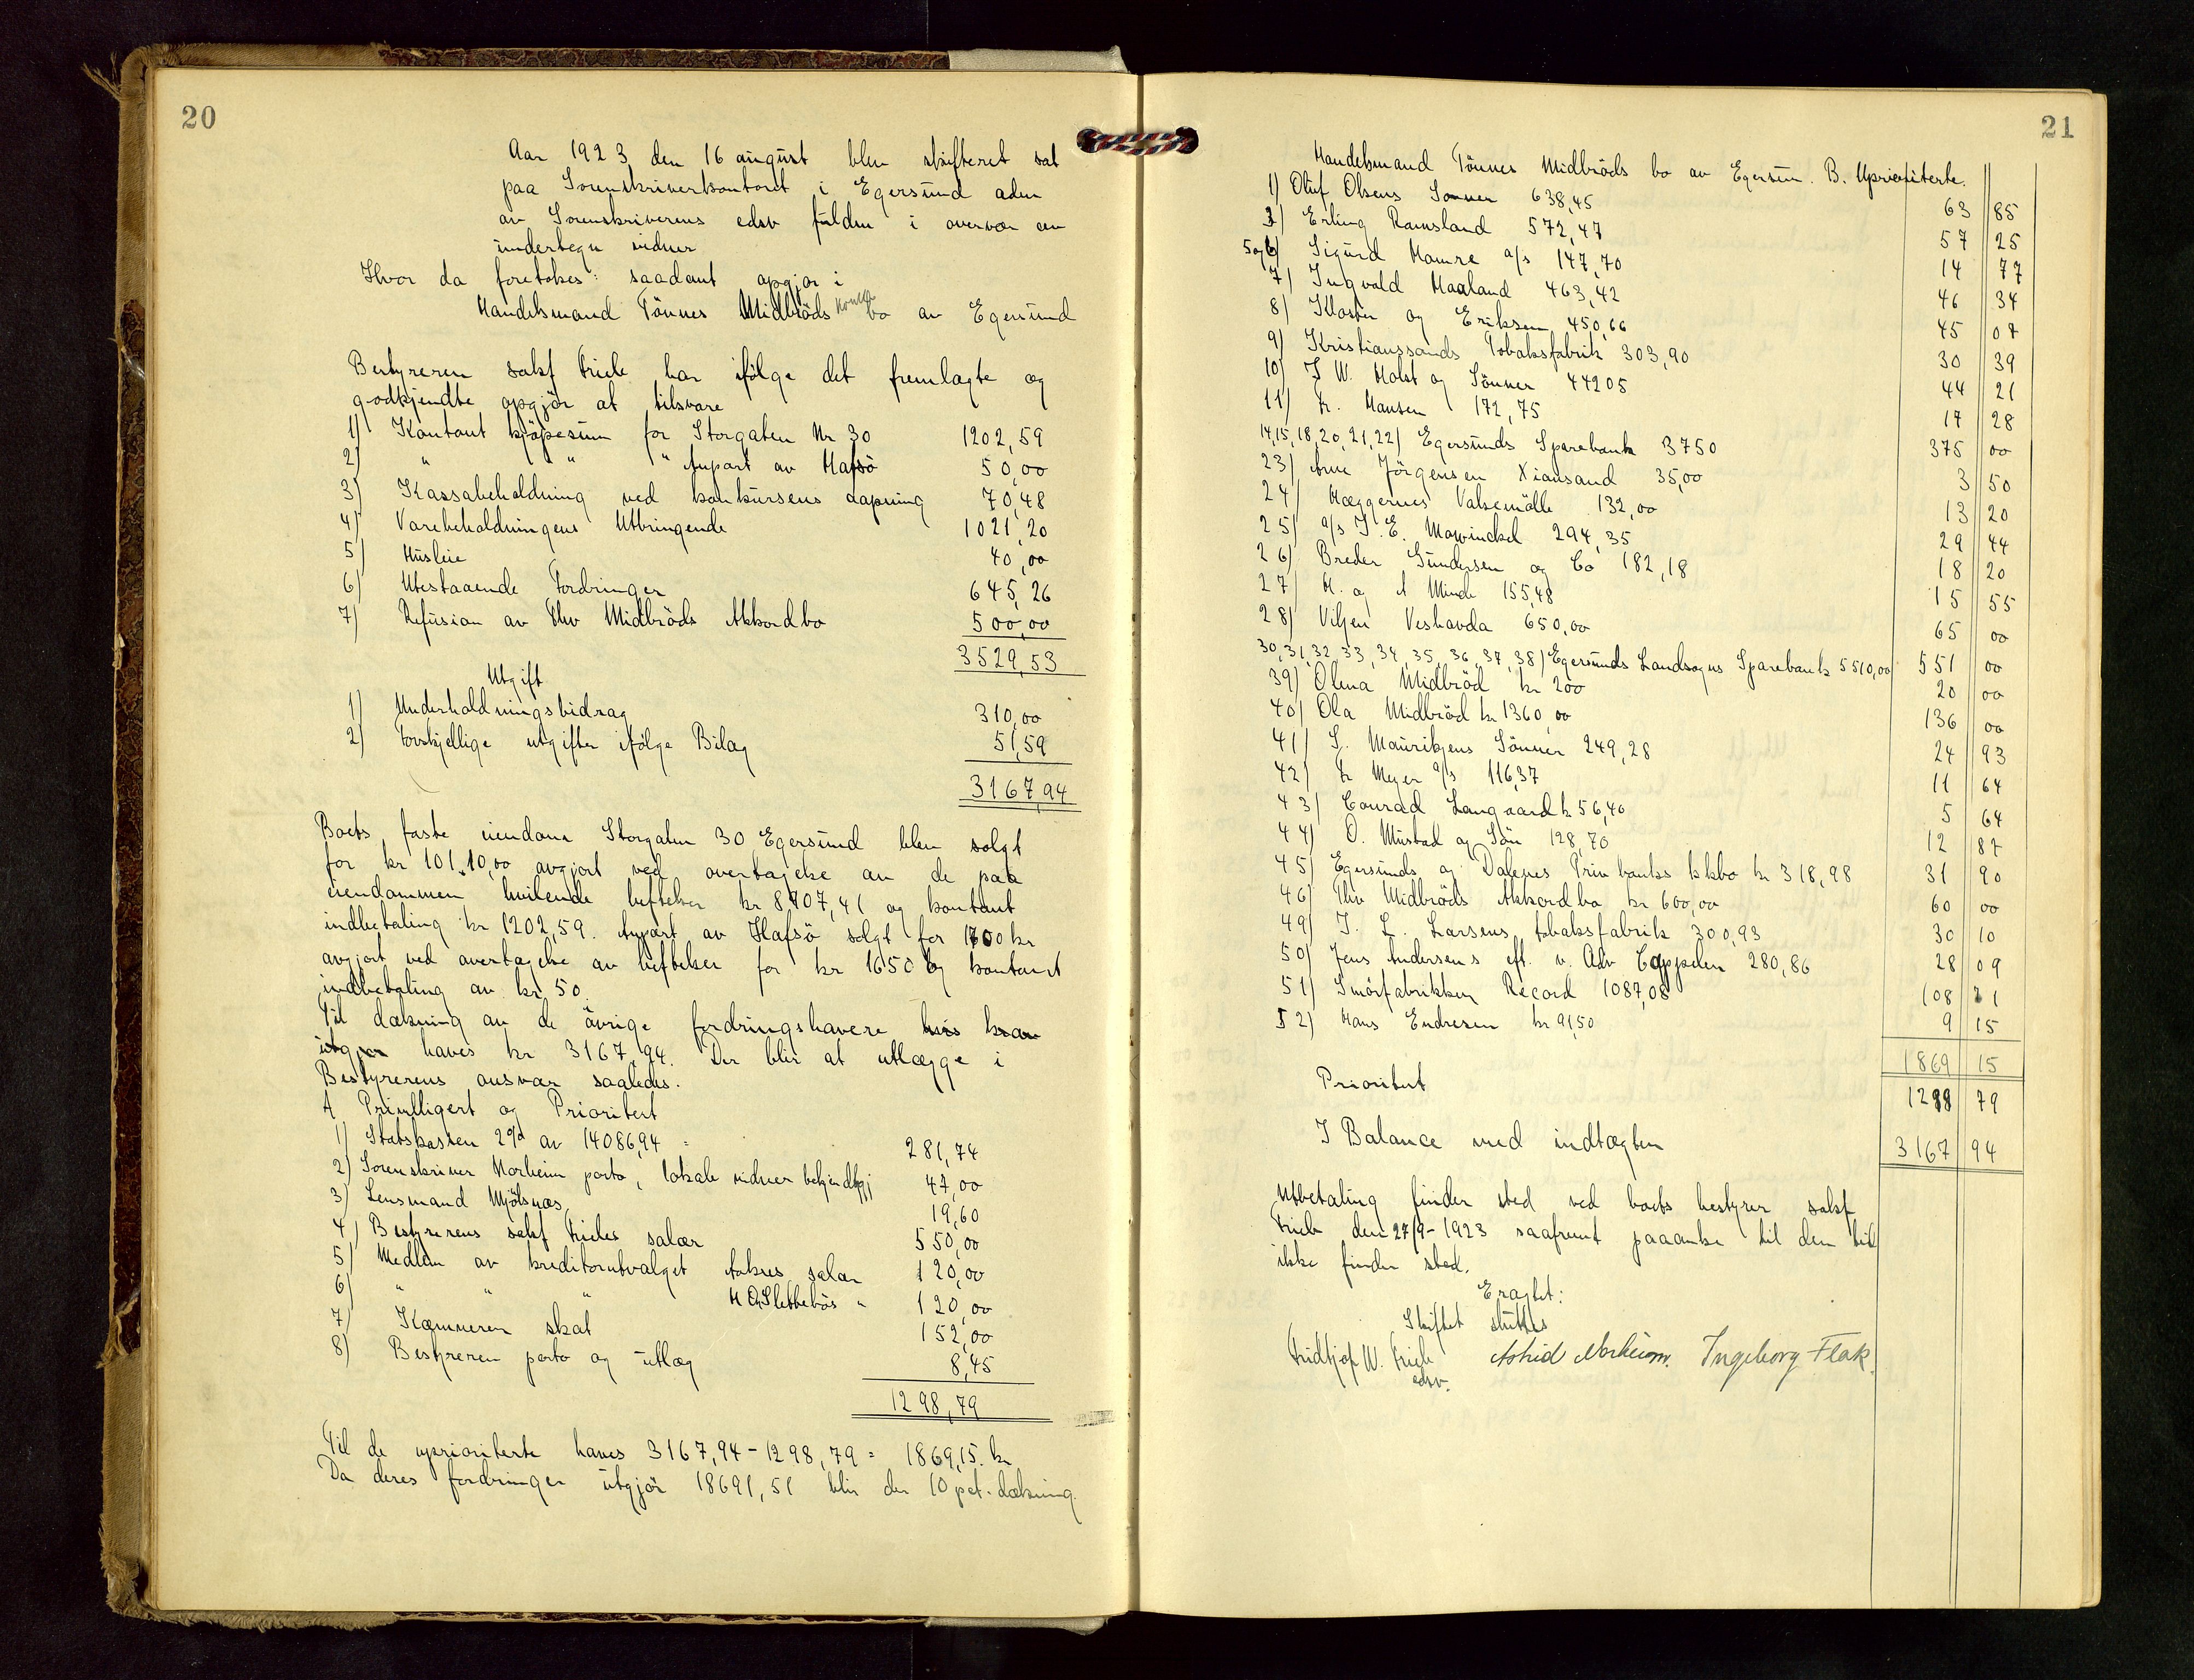 20
Aar 1923 den 16 august blev skifteret sat
paa Sorenskriverkontoret i Egersund adm
av Sorenskriverens edsv fuldm i overvær av
undertegn vidner
Hvor da foretokes: saadant opgjør i
Handelsmand Tönnes Midbröds konk bo av Egersund
Bestyreren sakf Friele har ifölge det fremlagte og
godkjendte opgjör at tilsvare
1) Kontant kjöpesum for Storgaten Nr 30 1202,59
2) " " " Anpart av Hafsö 50,00
3) Kassabeholdning ved konkursens aapning 70,48
4) Varebeholdningens Utbringende 1021,20
5) Husleie 40,00
6) Utestaaende Fordringer 645,26
7) Refusion av Thv Midbröds Akkordbo 500,00
3529,53
Utgift
1) Underholdningsbidrag 310,00
2) Forskjellige utgifter ifölge Bilag 51,59
3167,94
Boets faste eiendom Storgaten 30 Egersund blev solgt
for kr 101.10,00 avgjort ved overtagelse av de paa
eiendommen hvilende heftelser kr 8907,41 og kontant
indbetaling kr 1202,59. Anpart av Hafsö solgt for 1700 kr
avgjort ved overtagelse av heftelser for kr 1650 og kontant
indbetaling av kr 50
Til dækning av de övrige fordringshavere hvis krav
utgjør haves kr 3167,94. Der blir at utlægge i
Bestyrerens ansvar saaledes.
A Privilligert og Prioritert
1) Statskassen 2% av 14086,94 = 281,74
2) Sorenskriver Norheim porto, lokale vidner bekjendtgj 47,00
3) Lensmand Mjölsnæs 19,60
4) Bestyrerens sakf Frieles salær 550,00
5) Medlem av kreditorutvalget Aakres salær 120,00
6) " " " H O Slettebös " 120,00
7) Kæmneren skat 152,00
8) Bestyreren porto og utlæg 8,45
1298,79
Til de uprioriterte haves 3167,94 - 1298,79 = 1869,15. kr
Da deres fordringer utgjör 18691,51 blir der 10 pct. dækning.
21
Handelsmand Tönnes Midbröds bo av Egersun. B. Uprioriterte.
1) Oluf Olsens Sønner 638,45 63 85
3) Erling Ramsland 572,47 57 25
5 og 6) Sigurd Hamre a/s 147,70 14 77
7) Ingvald Haaland 463,42 46 34
8) Kloster og Eriksen 450,66 45 07
9) Kristianssands Tobaksfabrik 303,90 30 39
10) J W. Holst og Sönner 44205 44 21
11) Fr. Hansen 172,75 17 28
14,15,18,20,21,22) Egersunds Sparebank 3750 375 00
23) Arne Jörgensen Xiansand 35,00 3 50
24) Hæggernes Valsemölle 132,00 13 20
25) a/s J. E. Mowinckel 294,35 29 44
26) Breder Gundersen og Co 182,18 18 20
27) H. og A Minde 155,48 15 55
28) Viljen Veshovda 650,00 65 00
30,31,32,33,34,35,36,37,38) Egersunds Landsogns Sparebank 5510,00 551 00
39) Olena Midbröd kr 200 20 00
40) Ola Midbröd kr 1360,00 136 00
41) L. Mauritzens Sönner 249,28 24 93
42) Fr Meyer a/s 116,37 11 64
43) Conrad Langaard kr 56,40 5 64
44) O. Mustad og Sön 128,70 12 87
45) Egersunds og Dalenes Priv banks kkbo kr 318,98 31 90
46) Thv Midbröds Akkordbo kr 600,00 60 00
49) J. L. Larsens tobaksfabrik 300,93 30 10
50) Jens Andersens eft. v. Adv Cappelen 280,86 28 09
51) Smörfabrikken Record 1087,08 108 71
52) Hans Endresen kr 91,50 9 15
1869 15
Prioritert 1298 79
I Balance med indtægten 3167 94
Utbetaling finder sted ved boets bestyrer sakf
Friele den 27/9 - 1923 saafremt paaanke til den tid
ikke finder sted.
Eragtet:
Skiftet sluttes
Fridtjof W. Friele Astrid Norheim. Ingeborg Flak
edsv.